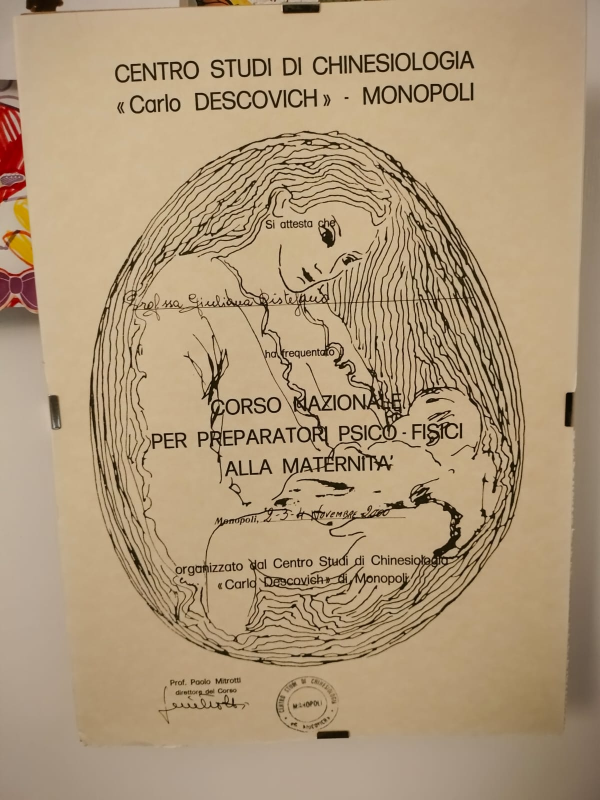 CENTRO STUDI DI CHINESIOLOGIA
«Carlo DESCOVICH» - MONOPOLI
Si attesta che
Prof.ssa Giuliana Distefano
ha frequentato
CORSO NAZIONALE
PER PREPARATORI PSICO-FISICI
ALLA MATERNITA'
Monopoli, 2-3-4 NOVEMBRE 2000
organizzato dal Centro Studi di Chinesiologia
«Carlo Descovich» di Monopoli
Prof. Paolo Mitrotti
direttore del Corso
CENTRO STUDI DI CHINESIOLOGIA
MONOPOLI